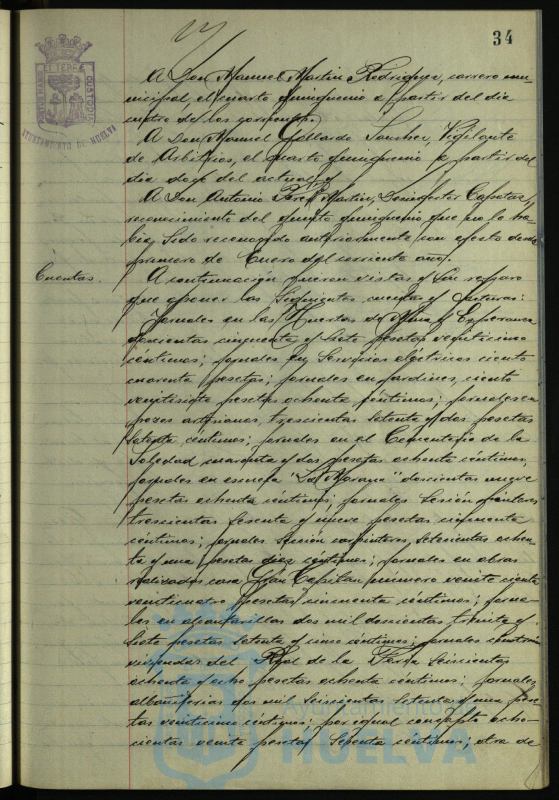 34
A Don Manuel Martin Rodriguez, carrero mu-
nicipal, el cuarto quinquenio a partir del dia
cuatro de los corrientes.
A Don Manuel Gallardo Sanchez, Vigilante
de Arbitrios, el cuarto quinquenio a partir del
dia doce del actual, y
A Don Antonio Perez Martin, Desinfector Capataz,
reconocimiento del quinto quinquenio que no le ha-
bia sido reconocido anteriormente con efecto desde
primero de Enero del corriente año.
Cuentas.
A continuación fueron vistas y sin reparo
que oponer las siguientes cuentas y facturas:
Jornales en las Huertas de Mina y Esperanza
doscientas cincuenta y siete pesetas veinticinco
centimos; jornales en Servicios eléctricos ciento
cuarenta pesetas; jornales en jardines, ciento
veintisiete pesetas ochenta centimos; jornales en
pozos artesianos, trescientas setenta y dos pesetas
setenta centimos; jornales en el Cementerio de la
Soledad cuarenta y dos pesetas ochenta centimos,
jornales en escuela "La Morana" doscientas nueve
pesetas ochenta centimos; jornales Sesión pintores
trescientas sesenta y nueve pesetas cincuenta
centimos; jornales Sección carpinteros, setecientas ochen-
ta y una pesetas diez centimos; jornales en obras
realizadas casa Gran Capitan numero veinte ciento
veinticuatro pesetas cincuenta centimos; jorna-
les en alcantarillas dos mil doscientas treinta y
siete pesetas setenta y cinco centimos; jornales
viviendas del Real de la Feria seiscientas
ochenta y ocho pesetas ochenta centimos; jornales
albañilerias dos mil seiscientas setenta y una pese-
tas veinticinco centimos; por igual concepto ocho-
cientas veinte pesetas setenta centimos; otra de
AYUNTAMIENTO DE HUELVA
Ayuntamiento de
HUELVA